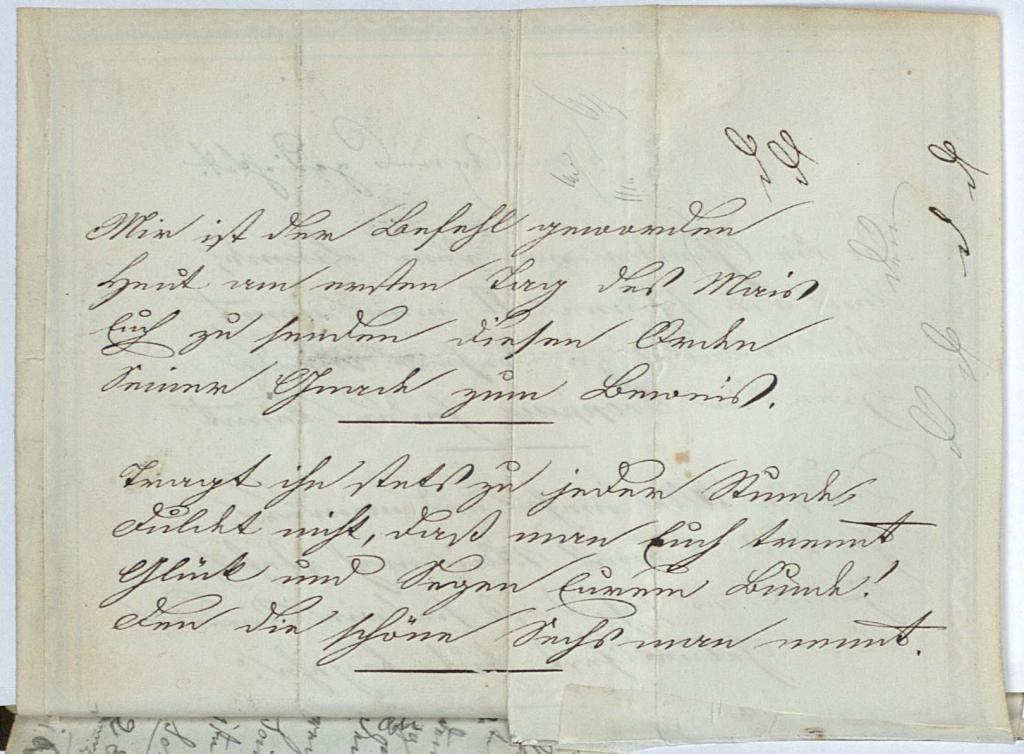 Mir ist der Befehl geworden
Heut am ersten Tag des Mais
Euch zu senden diesen Orden
Seiner Gnade zum Beweis.
Tragt ihn stets zu jeder Stunde,
Duldet nicht, daß man Euch trennt
Glück und Segen Eurem Bunde!
Den die schöne Sechs man nennt.